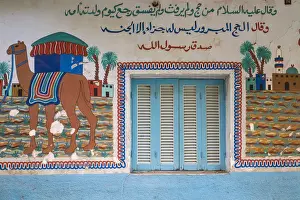 وقال عليه السلام من حج ولم يرفث ولم يفسق رجع كيوم ولدته امه
وقال الحج المبرور ليس له جزاء إلا الجنة
صدق رسول الله